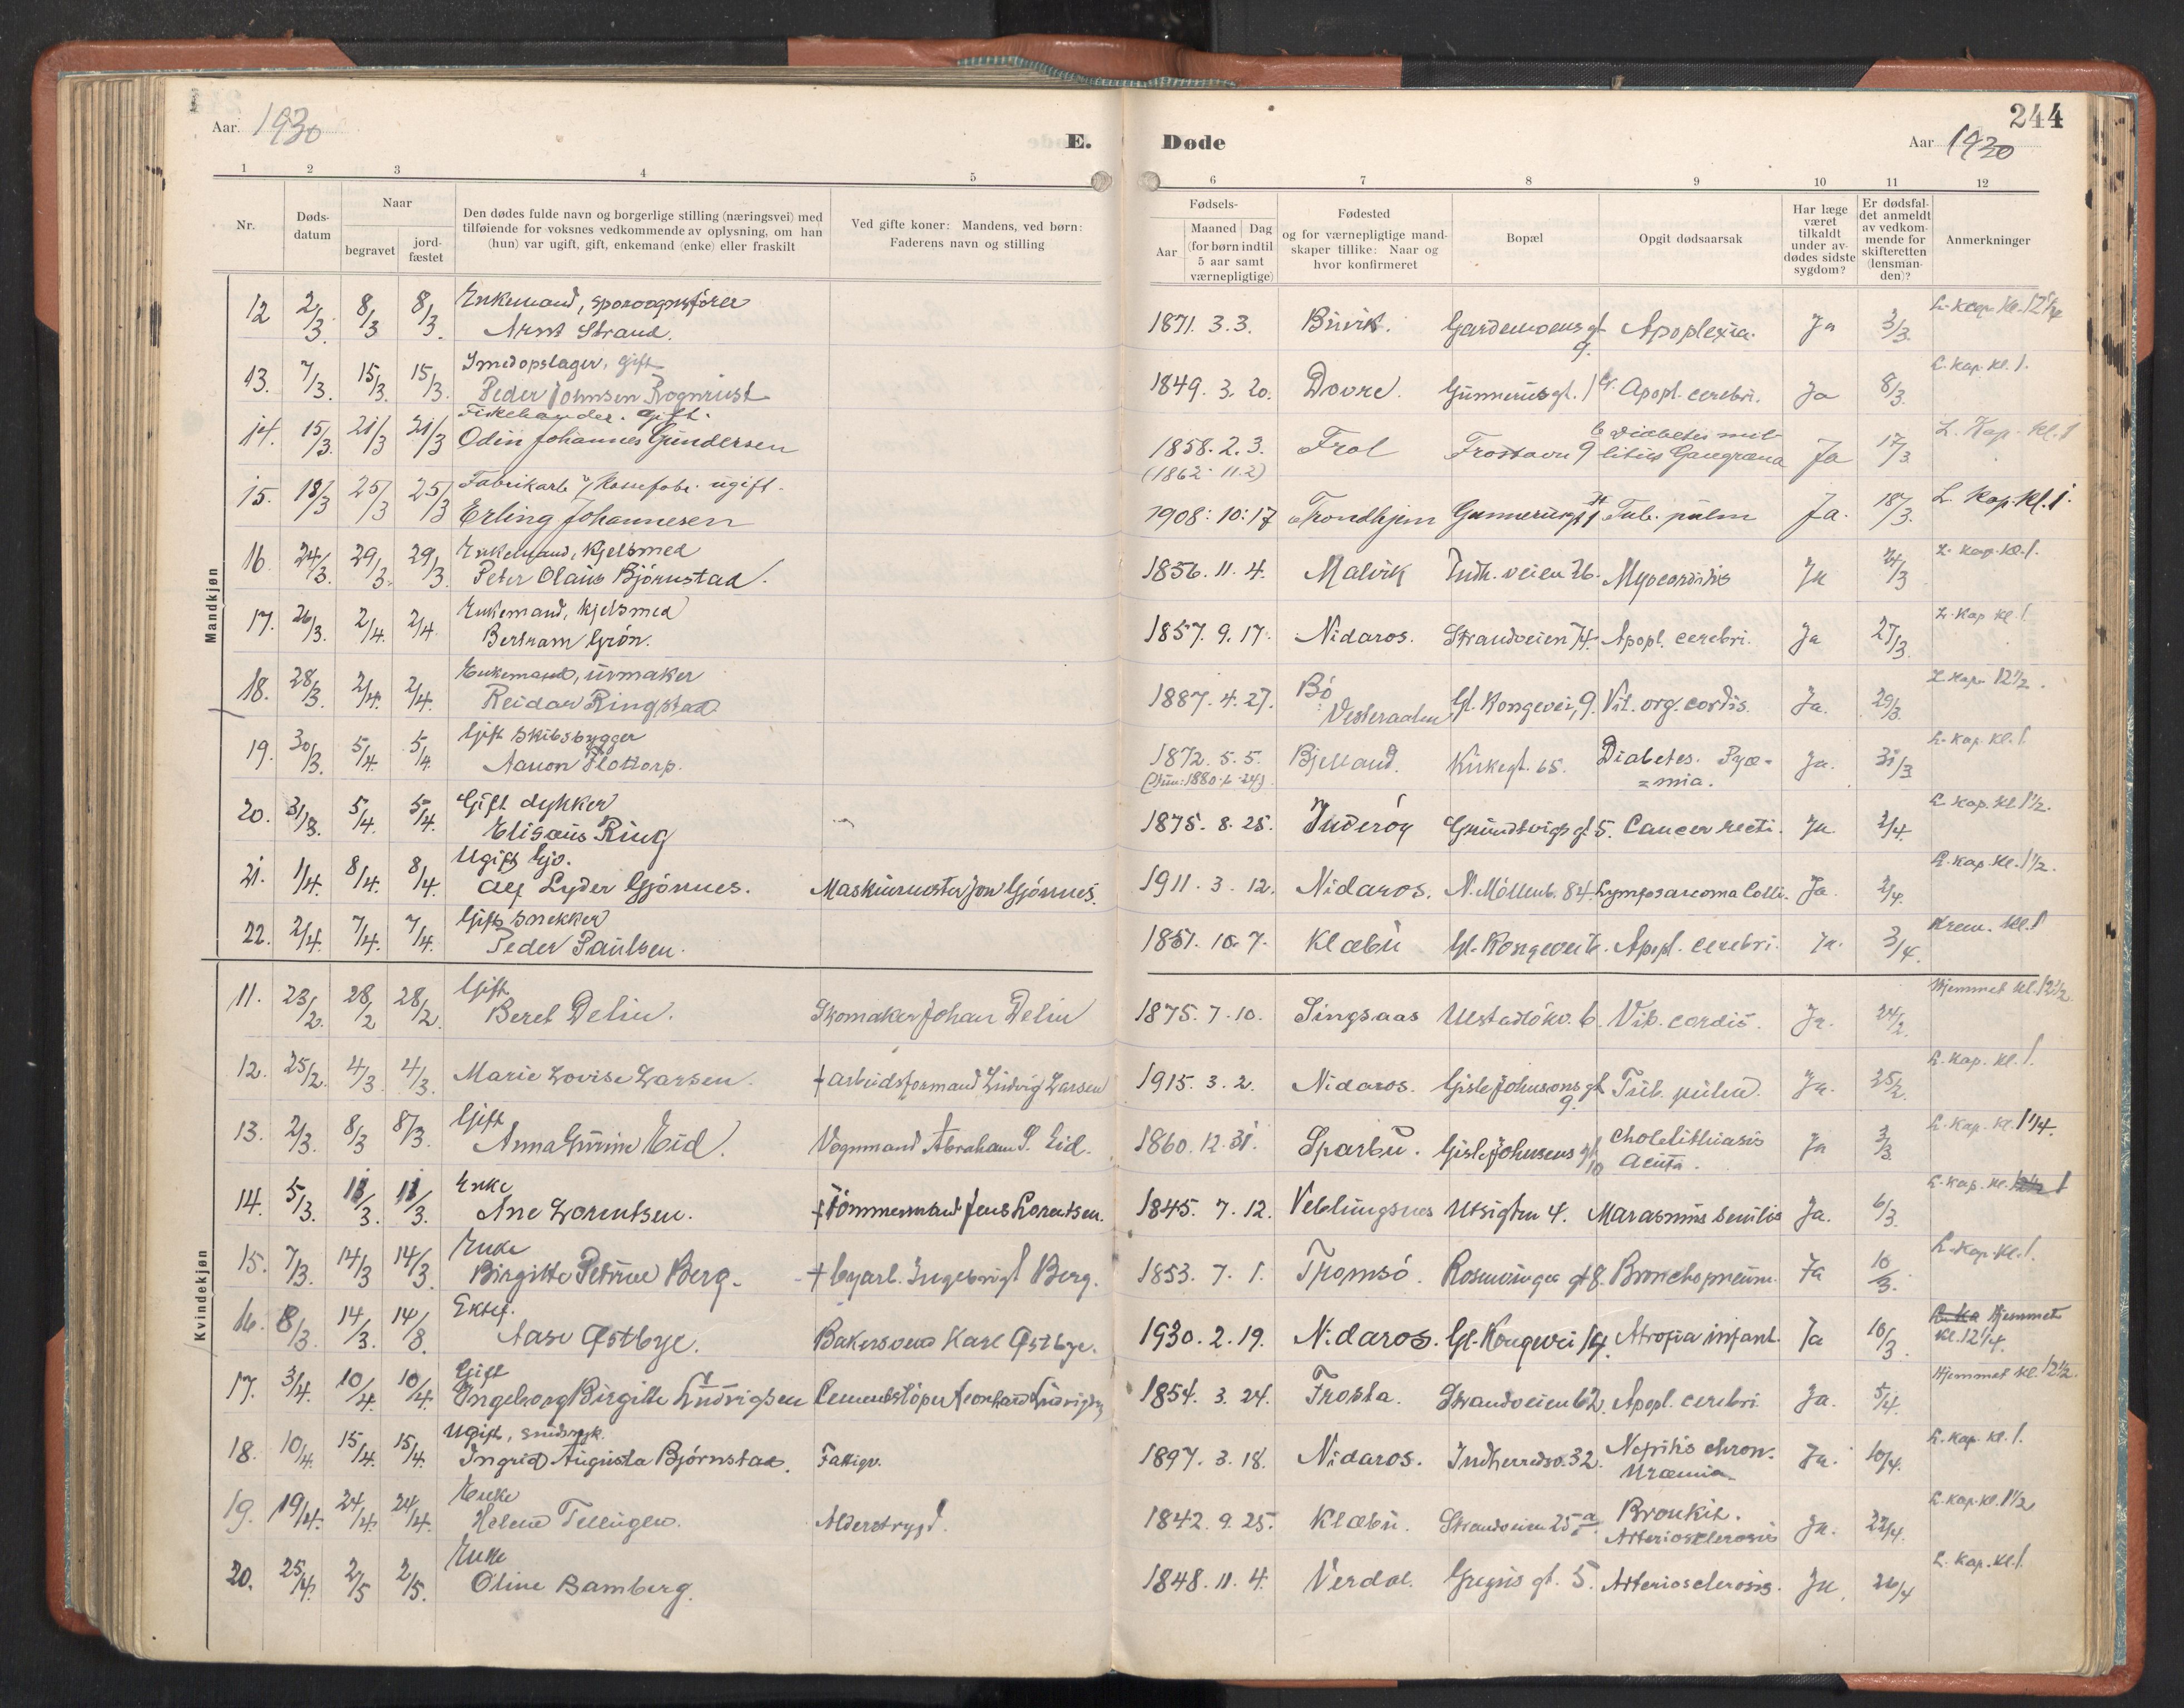 244
Aar. 1930
E.
Døde
Aar 1930
1 2 3 4 5
6 7 8 9 10 11 12
Nr.
Døds-
datum
Naar
begravet
jord-
fæstet
Den dødes fulde navn og borgerlige stilling (næringsvei) med
tilføiende for voksnes vedkommende av oplysning, om han
(hun) var ugift, gift, enkemand (enke) eller fraskilt
Ved gifte koner: Mandens, ved børn:
Faderens navn og stilling
Fødsels-
Aar
Maaned Dag
(for børn indtil
5 aar samt
værnepligtige)
Fødested
og for værnepligtige mand-
skaper tillike: Naar og
hvor konfirmeret
Bopæl
Opgit dødsaarsak
Har læge
været
tilkaldt
under av-
dødes sidste
sygdom?
Er dødsfal-
det anmeldt
av vedkom-
mende for
skifteretten
(lensman-
den)?
Anmerkninger
Mandkjøn
Enkemand, sporvognsfører
12 2/3. 8/3 8/3. Arnt Strand. 1871. 3. 3. Buvik. Gardemoens gt 9. Apoplexia. Ja 3/3. L. Kap. Kl.
Smedopslager, gift
13. 7/3. 15/3. 15/3. Peder Johnsen Rognrust 1849. 3. 20. Dovre. Gunnerus gt. 1 Apopl. cerebri. Ja 8/3. L. Kap. Kl. 1.
Fiskehandler. Gift.
14. 15/3. 21/3 21/3 Odin Johannes Gundersen 1858. 2. 3. Frol 9 Diabetes mel-
(1862 11.2) litus Gangræna Ja 17/3 L. Kap. Kl. 1
Fabrikarb. ugift.
15. 18/3 25/3 25/3 Erling Johannesen 1908: 10: 17 Trondhjem Gunnerusgt Tub. pulm Ja. 18/3. L. Kap. Kl. 1.
Enkemand, Kjelsmed
16. 24/3. 29/3. 29/3. Peter Olaus Bjørnstad. 1856. 11. 4. Malvik Indh. veien 26. Myocarditis Ja 24/3 L. Kap. Kl. 1.
Enkemand, Kjelsmed
17. 26/3. 2/4. 2/4. Bertram Grøn. 1857. 9. 17. Nidaros. Strandveien 74. Apopl. cerebri. Ja 27/3. L. Kap Kl. 1.
Enkemand, urmaker
18. 28/3. 2/4. 2/4. Reidar Ringstad 1887. 4. 27. Bö Vesteraalen Gl. Kongevei, 9. Vit. org. cordis. Ja. 29/3. L. Kap. 12 1/2.
Gift Skibsbygger
19. 30/3. 5/4. 5/4. Aanon Flottorp. 1872. 5. 5. Bjelland. Kirkegt. 65. Diabetes. Pyæ-
=mia. Ja. 31/3 L. Kap. Kl. 1.
Gift dykker
20. 31/3. 5/4. 5/4. Elisæus Ring 1875. 8. 25. Inderøy Grundtvigs gt 5. Cancer recti. Ja. 2/4. L. Kap. Kl 1 1/2.
Ugift
21. 1/4. 8/4. 8/4. Alf Lyder Gjønnes. Maskinmester Jon Gjønnes. 1911. 3. 12. Nidaros. N. Möllenb. 84. Lymfosarcoma Colli. Ja. 2/4. L. Kap. Kl. 1 1/2.
Gift Snekker
22. 2/4. 7/4. 7/4. Peder Paulsen. 1851. 10. 7. Klæbu Gl. Kongevei Apopl. cerebri. Ja. 3/4. Krem. Kl. 1
Kvindekjøn
Gift
11. 23/2. 28/2 28/2. Beret Delin. Skomaker Johan Delin 1875. 7. 10. Singsaas 6. Vit. cordis. Ja. 24/2. Hjemmet Kl. 12 1/2.
12. 25/2. 4/3. 4/3. Marie Lovise Larsen. + arbeidsformand Ludvig Larsen 1915. 3. 2. Nidaros. Gisle Johnsons gt 9. Tub. pulm. Ja. 25/2. L. Kap. Kl. 1.
Gift
13. 2/3. 8/3 8/3. Anna Gurine Eid. Vognmand Abraham S. Eid. 1860. 12. 31. Sparbu. Gisle Johnsens gt 10 Cholelithiasis
Acuta. Ja 3/3. L. Kap. Kl. 1 1/4.
Enke
14. 5/3. 11/3. 11/3. Ane Lorentsen. + Tömmermand Jens Lorentsen. 1845. 7. 12. Veblungsnes Utsigten 4. Marasmus senilis Ja. 6/3. L. Kap. Kl. 1
Enke
15. 7/3. 14/3 14/3. Birgitte Petrine Berg. + byarb. Ingebrigt Berg. 1853. 7. 1. Tromsö. 8. Bronchopneum. Ja 10/3. L. Kap. Kl. 1.
16. 8/3 14/3. 14/8. Aase Østbye. Bakersvend Karl Østbye. 1930. 2. 19. Nidaros. Gl. Kongevei 14. Atrofia infant. Ja 10/3. Hjemmet
Kl. 12 1/4.
Gift
17. 3/4. 10/4. 10/4. Ingeborg Birgitte Ludvigsen Cementstöper Leonhard Ludvigsen 1854. 3. 24. Frosta. Strandveien 62. Apopl. cerebri Ja. 5/4. Hjemmet Kl. 12 1/2.
Ugift,
18. 10/4. 15/4. 15/4. Ingrid Augusta Bjørnstad. Fattigv. 1897. 3. 18. Nidaros. Indherredsv. 32. Nefritis chron.
Uræmia. Ja. 10/4. L. Kap. Kl. 1.
Enke
19. 19/4. 24/4. 24/4. Helene Tellugen. Alderstrygd. 1842. 9. 25. Klæbu. Strandveien 25 a Bronkit.
Arteriosclerosis Ja. 22/4. L. Kap. Kl. 1 1/2
Enke
20. 25/4. 2/5 2/5. Oline Bamberg. 1848. 11. 4. Verdal. gt. 5. Arteriosclerosis. Ja. 26/4 L. Kap. Kl. 1.